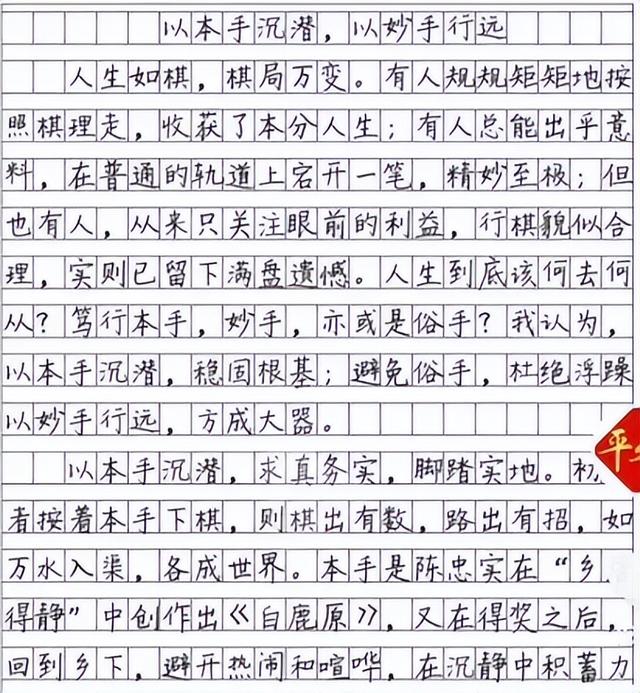 以本手沉潜，以妙手行远
人生如棋，棋局万变。有人规规矩矩地按
照棋理走，收获了本分人生；有人总能出乎意
料，在普通的轨道上宕开一笔，精妙至极；但
也有人，从来只关注眼前的利益，行棋貌似合
理，实则已留下满盘遗憾。人生到底该何去何
从？笃行本手，妙手，亦或是俗手？我认为，
以本手沉潜，稳固根基；避免俗手，杜绝浮躁
以妙手行远，方成大器。
以本手沉潜，求真务实，脚踏实地。初
者按着本手下棋，则棋出有数，路出有招，如
万水入渠，各成世界。本手是陈忠实在“乡
得静”中创作出《白鹿原》，又在得奖之后，
回到乡下，避开热闹和喧哗，在沉静中积蓄力
平